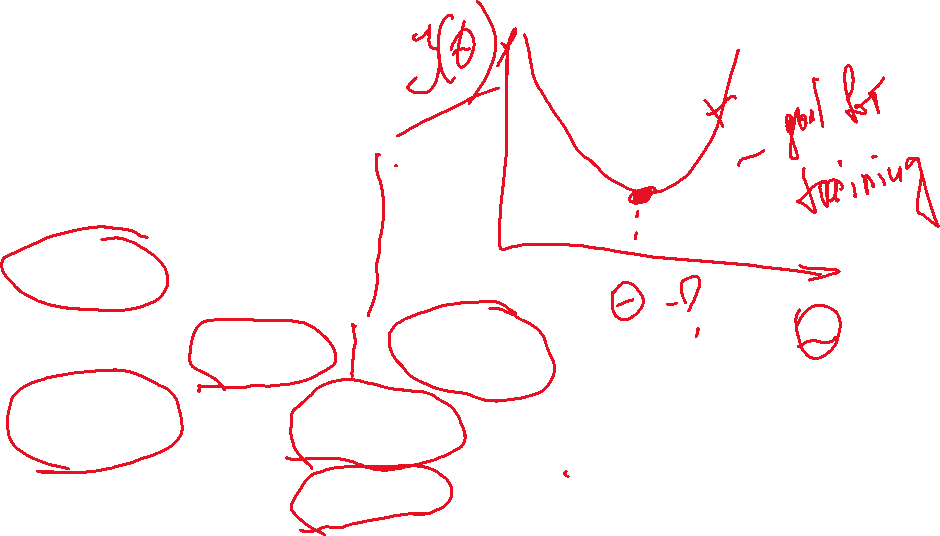 J(θ)
- goal for
training
θ - ?
θ